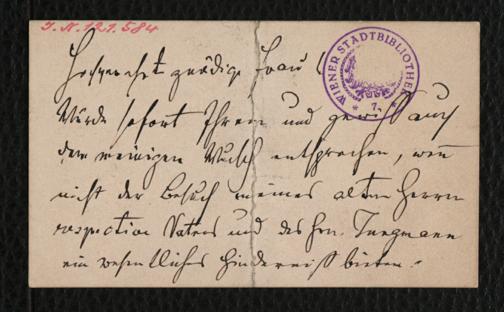 J. N. 121.584
WIENER STADTBIBLIOTHEK
* 7. *
Hochverehrt gnädige Frau!
Würde sofort Ihrem und gewiß auch
dem meinigen Wunsch entsprechen, wenn
nicht der Besuch meines alten Herrn
respective Vaters und des Hrn. Jungmann
ein wesentliches Hinderniß bieten.